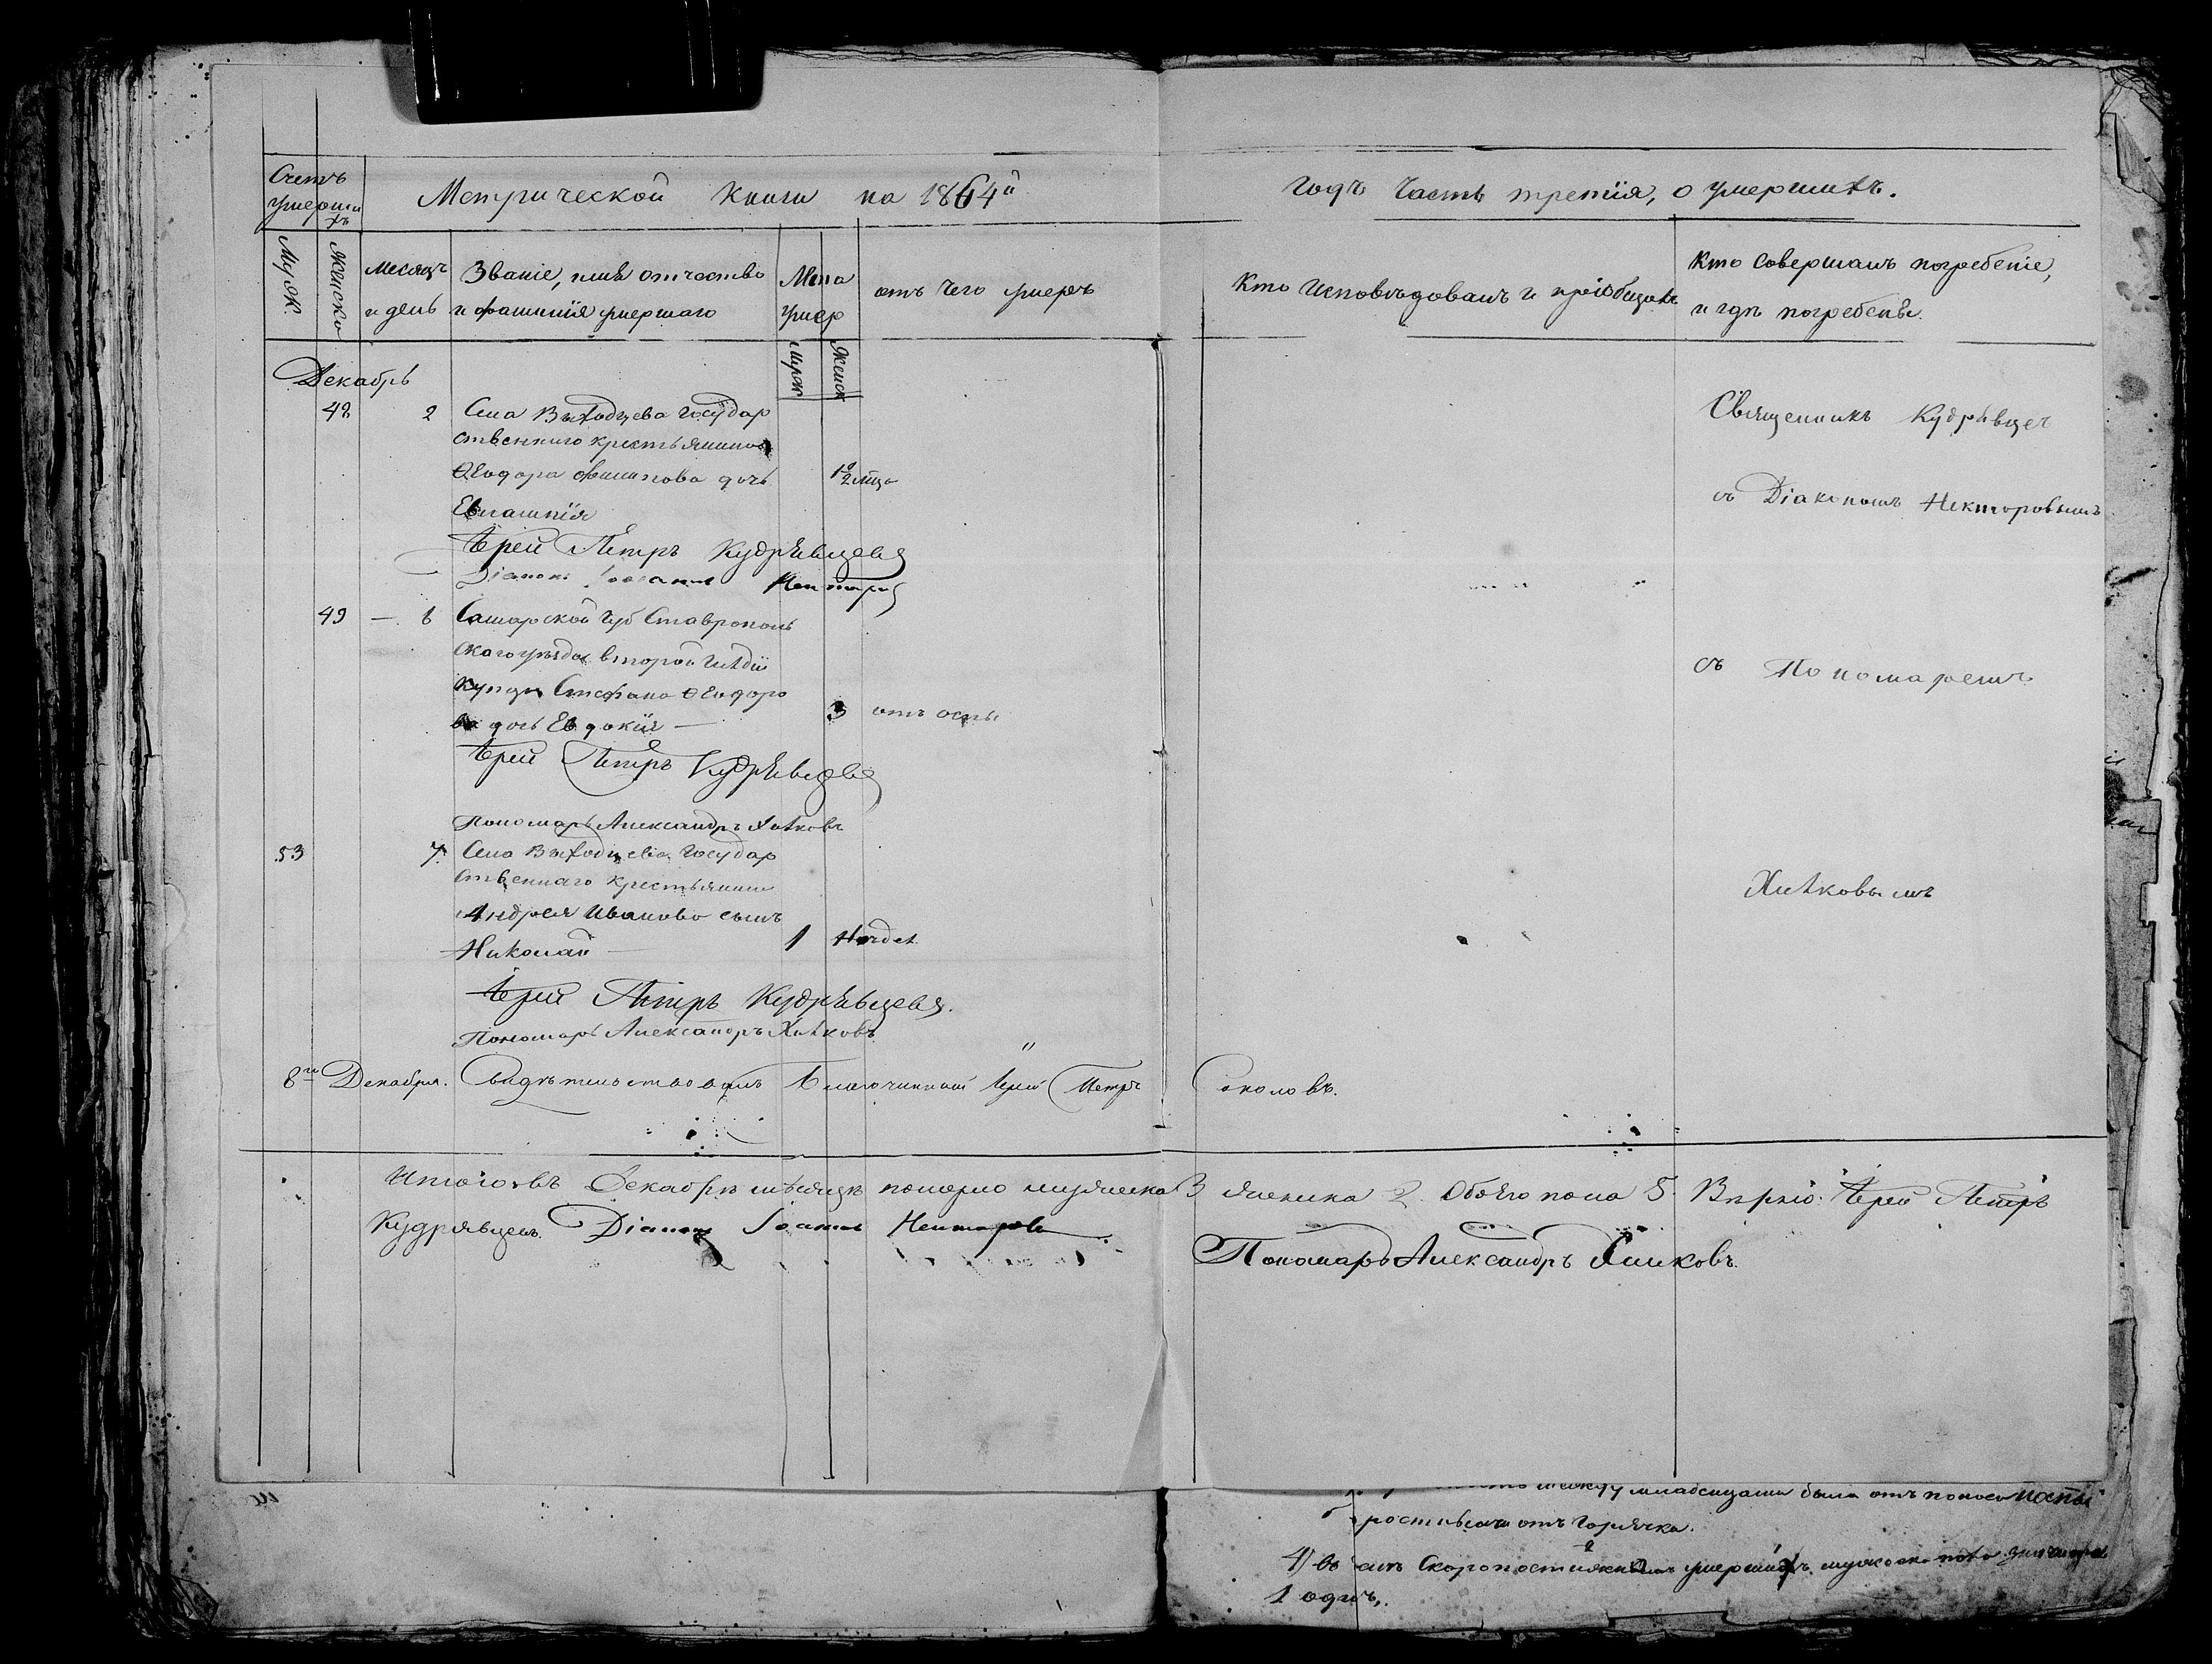 Счетъ
умерши
хъ
Метрической книги на 1864й
годъ Часть третія, о умершихъ.
Мужс.
Женско
месяцъ
и день
Званіе, имя отчество
и фамилія умершаго
Лѣта
умер
мужс
женск
отъ чего умеръ
Кто исповѣдовалъ и пріобщалъ
Кто совершалъ погребеніе,
и гдѣ погребены.
Декабрь
48 2 Села Выходцева Государ
ственнаго крестьянина
Ѳеодора Филипова дочь 1/2 мца
Евлампія
Іерей Петръ Кудрявцевъ
Діаконъ Іоаннъ Некторов
Священникъ Кудрявцев
съ Діакономъ Некторовымъ
49 — 6 Самарской губ Ставрополь
скаго уѣзда второй гилдіи
купца Стефана Ѳеодоро
ва дочь Евдокія — 3 отъ оспы
Іерей Петръ Кудрявцевъ
Пономарь Александръ Хилковъ
съ Пономаремъ
53 7. Села Выходцева Государ
ственнаго крестьянина
Андрея Иванова сынъ
Николай — 1
Іерей Петръ Кудрявцевъ.
Пономарь Александръ Хилковъ
Хилковымъ
8го Декабря. Свидѣтельствовалъ Благочинный Іерей Петръ Соколовъ.
Итого въ Декабрѣ мѣсяцѣ померло мужеска 3 женска 2. Обоего пола 5. Іерей Петръ
Кудрявцевъ. Діаконъ Іоаннъ Некторовъ
Пономарь Александръ Хилковъ.
между младенцами была отъ поноса
отъ горячки.
4) скоропостижно умершихъ мужеска пола
1 одинъ.